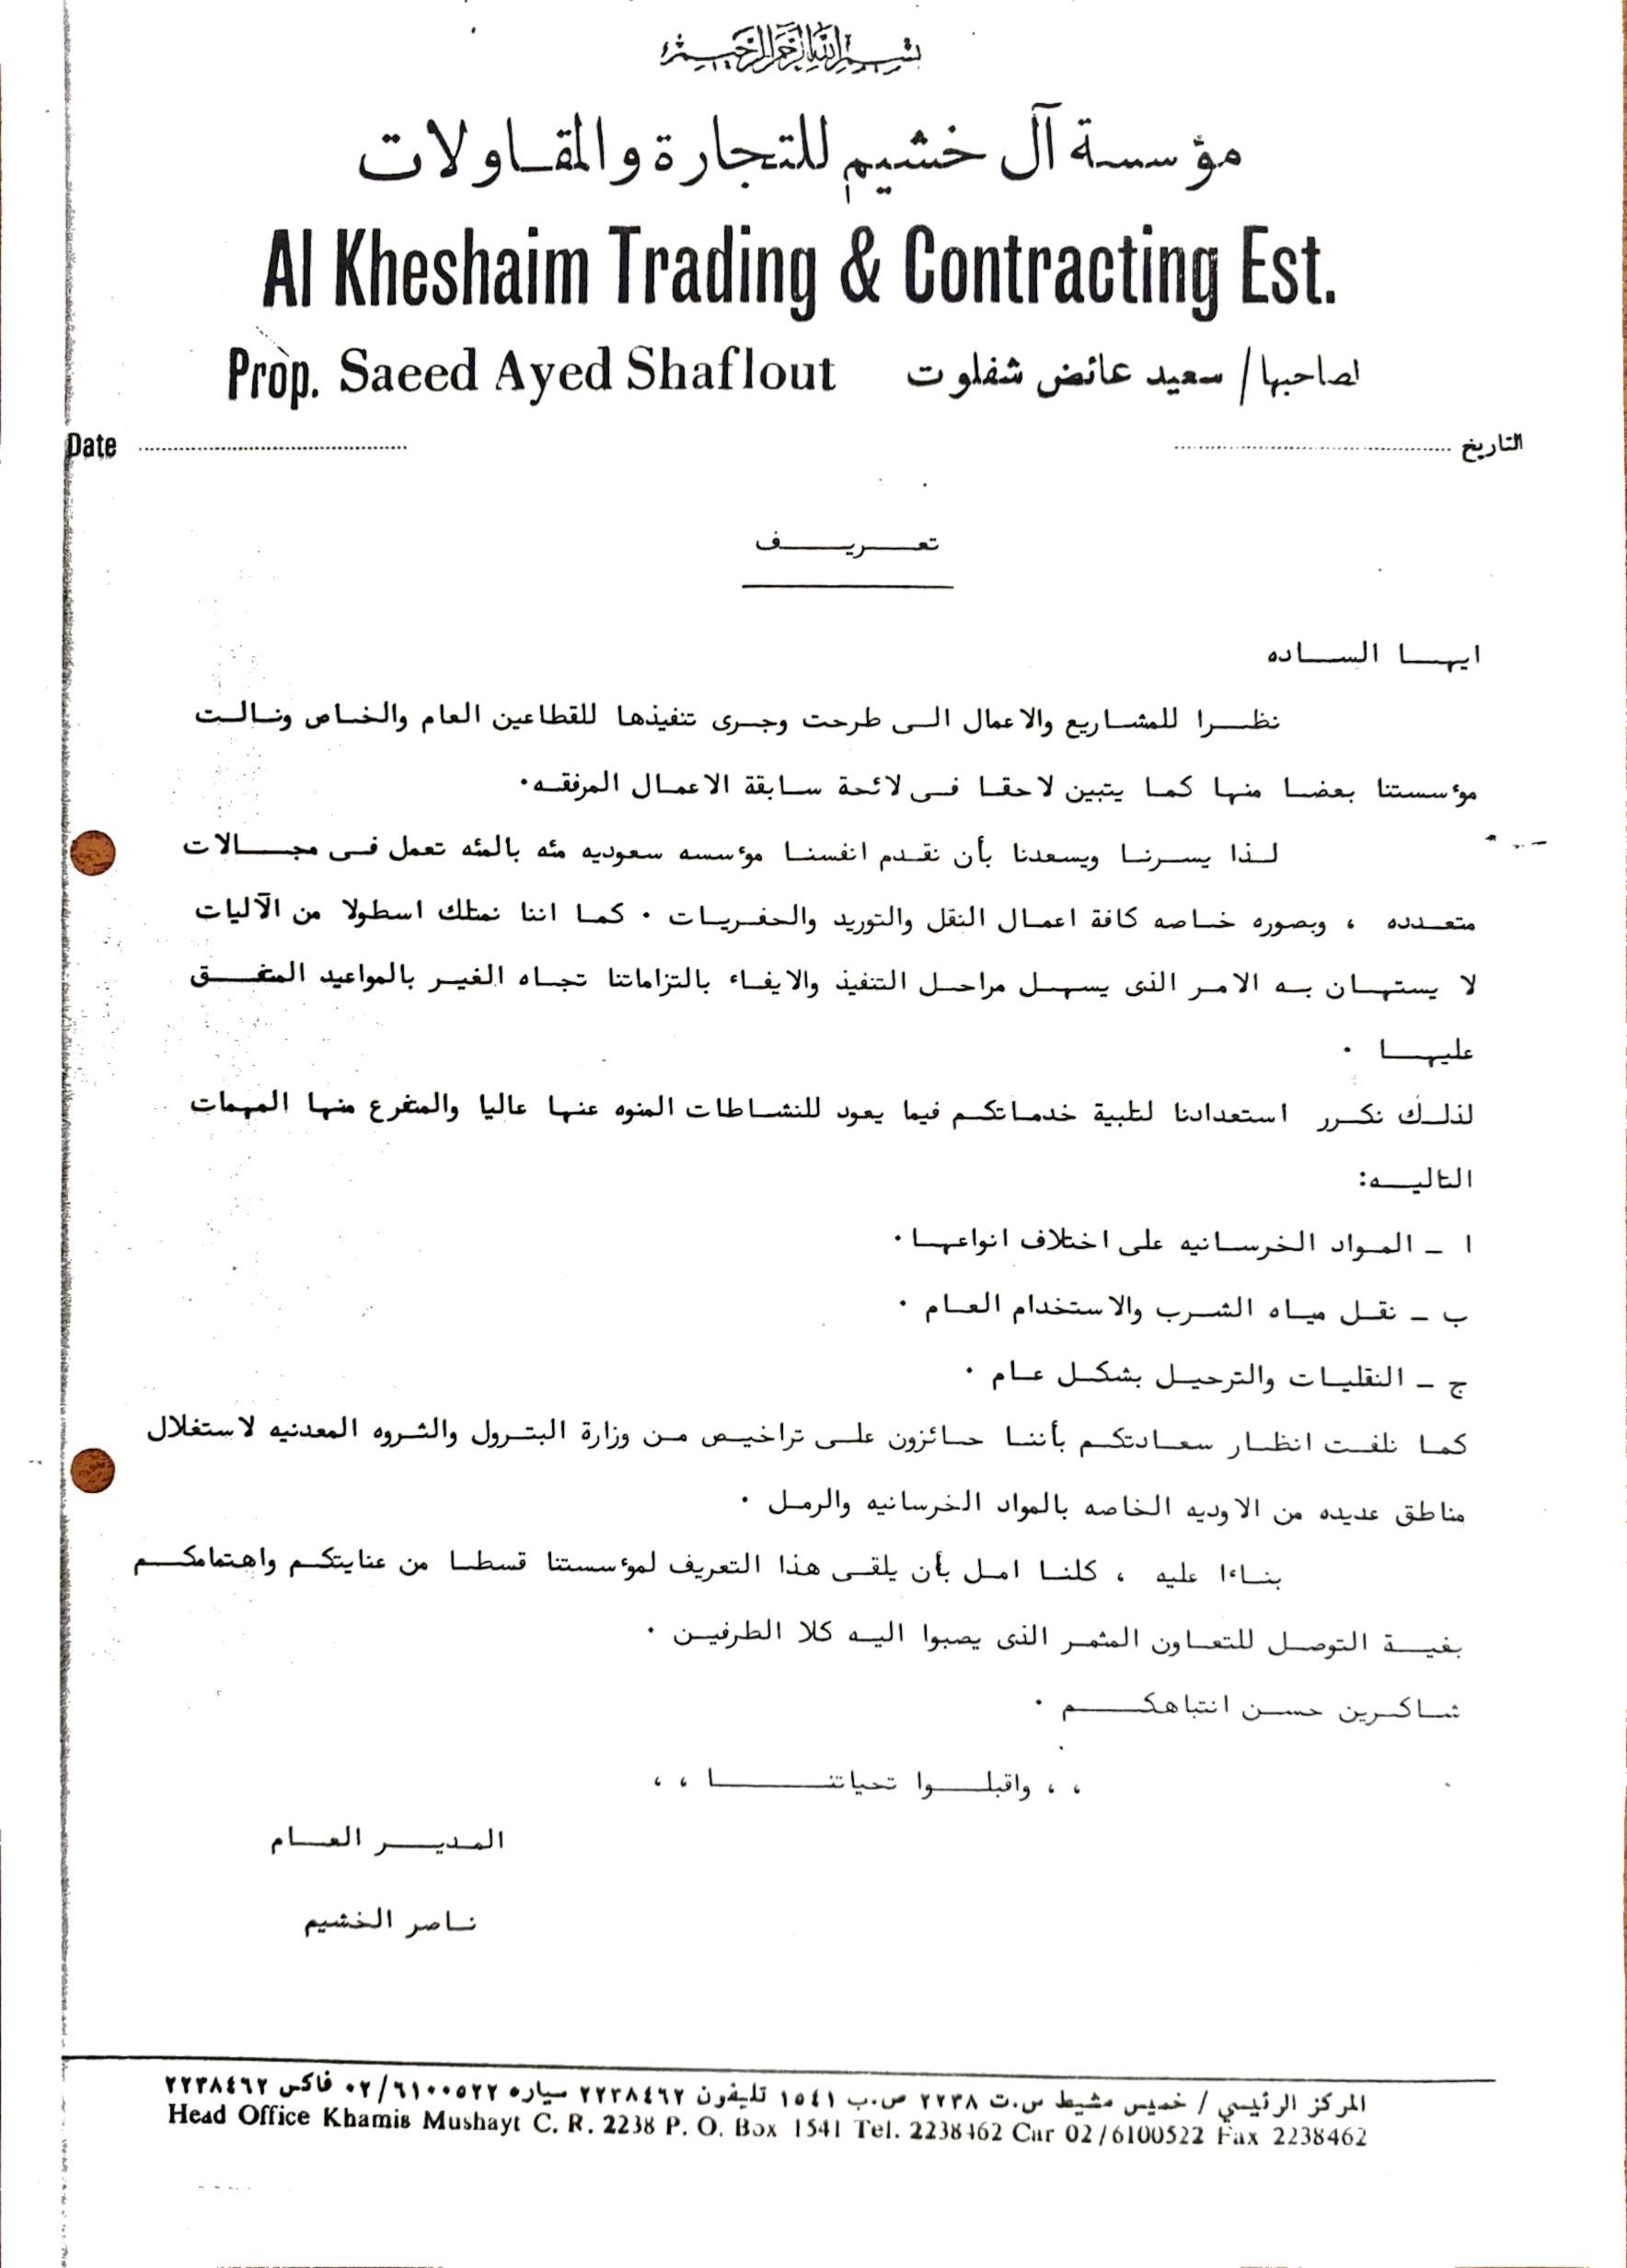 بسم الله الرحمن الرحيم
مؤسسة آل خشيم للتجارة والمقاولات
Al Kheshaim Trading & Contracting Est.
Prop. Saeed Ayed Shaflout لصاحبها/ سعيد عائض شفلوت
Date ........................ التاريخ ........................
تعريف
ايها الساده
نظرا للمشاريع والاعمال الى طرحت وجرى تنفيذها للقطاعين العام والخاص ونالت
موءسستنا بعضا منها كما يتبين لاحقا فى لائحة سابقة الاعمال المرفقه.
لذا يسرنا ويسعدنا بأن نقدم انفسنا موءسسه سعوديه مئه بالمئه تعمل فى مجالات
متعدده ، وبصوره خاصه كافة اعمال النقل والتوريد والحفريات . كما اننا نمتلك اسطولا من الآليات
لا يستهان به الامر الذى يسهل مراحل التنفيذ والايفاء بالتزاماتنا تجاه الغير بالمواعيد المتفق
عليها .
لذلك نكرر استعدادنا لتلبية خدماتكم فيما يعود للنشاطات المنوه عنها عاليا والمتفرع منها المهمات
التاليه:
ا - المواد الخرسانيه على اختلاف انواعها.
ب - نقل مياه الشرب والاستخدام العام .
ج - النقليات والترحيل بشكل عام .
كما نلفت انظار سعادتكم بأننا حائزون على تراخيص من وزارة البترول والثروه المعدنيه لاستغلال
مناطق عديده من الاوديه الخاصه بالمواد الخرسانيه والرمل .
بناءا عليه ، كلنا امل بأن يلقى هذا التعريف لموءسستنا قسطا من عنايتكم واهتمامكم
بغية التوصل للتعاون المثمر الذى يصبوا اليه كلا الطرفين .
شاكرين حسن انتباهكم .
،، واقبلوا تحياتنا ،،
المدير العام
ناصر الخشيم
المركز الرئيسي / خميس مشيط س.ت ٢٢٣٨ ص.ب ١٥٤١ تليفون ٢٢٣٨٤٦٢ سياره ٠٢/٦١٠٠٥٢٢ فاكس ٢٢٣٨٤٦٢
Head Office Khamis Mushayt C. R. 2238 P. O. Box 1541 Tel. 2238462 Car 02/6100522 Fax 2238462